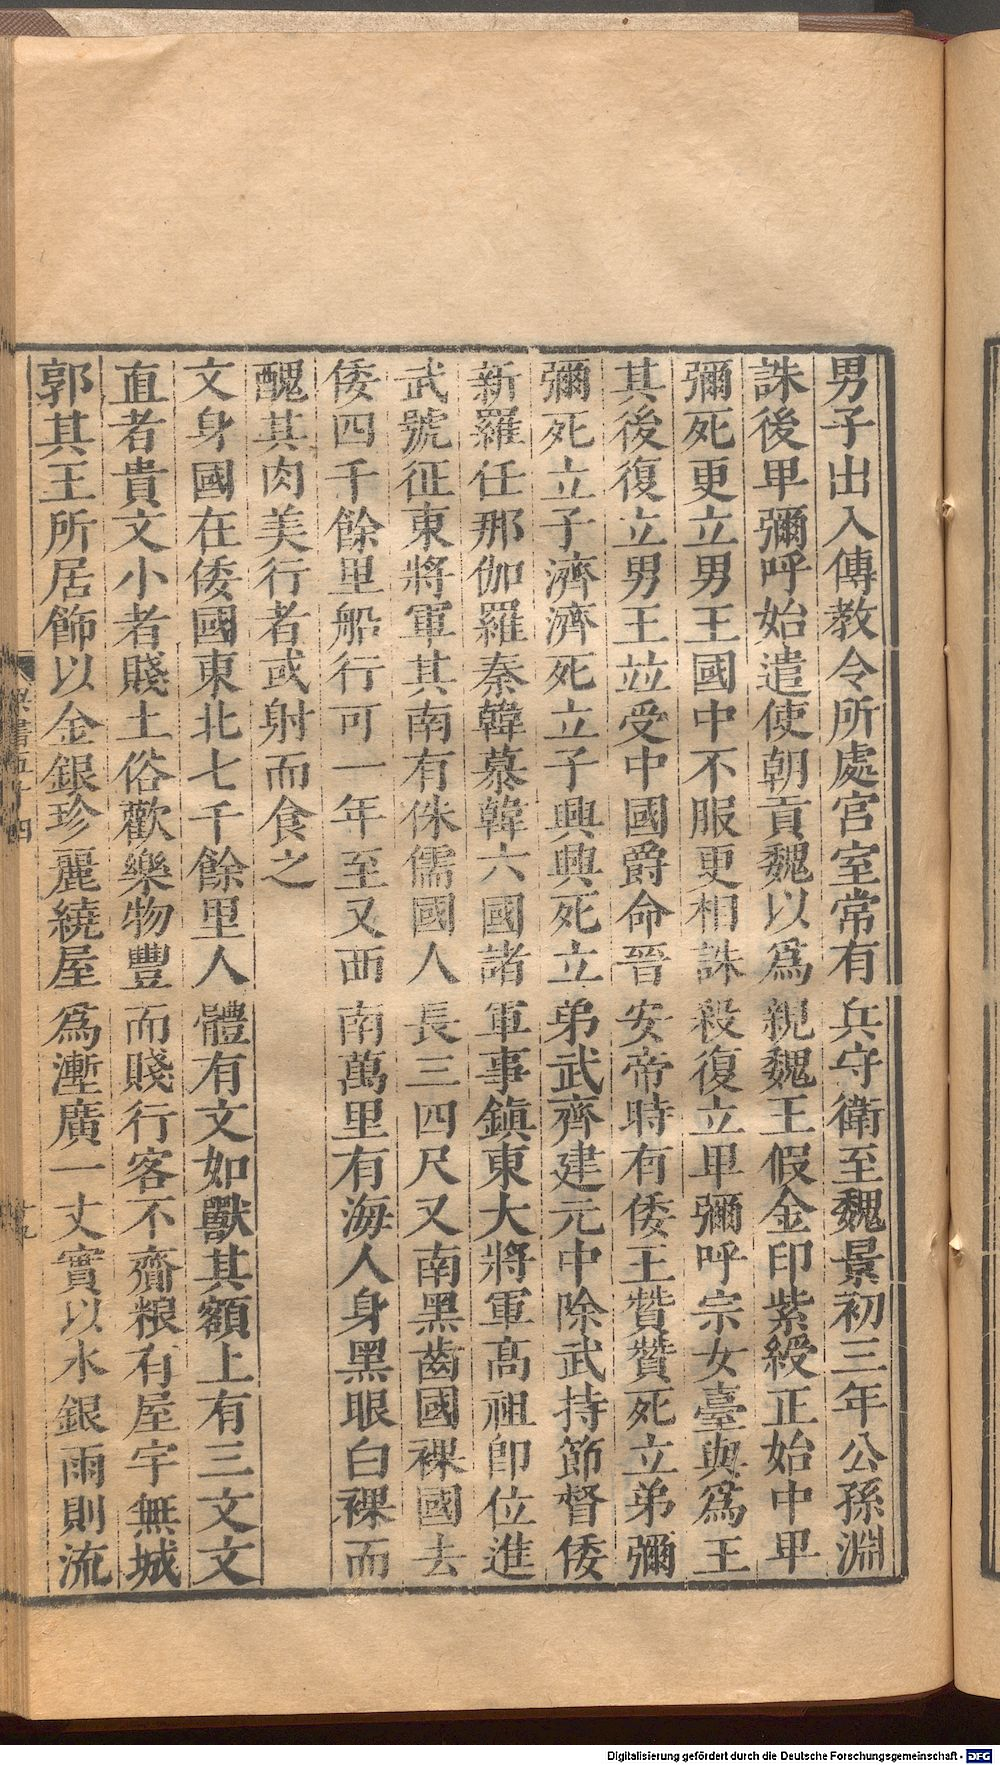 男子出入傳教令所處宮室常有兵守衛至魏景初三年公孫淵
誅後卑彌呼始遣使朝貢魏以爲親魏王假金印紫綬正始中卑
彌死更立男王國中不服更相誅殺復立卑彌呼宗女臺與爲王
其後復立男王並受中國爵命晉安帝時有倭王贊贊死立弟彌
彌死立子濟濟死立子興興死立弟武齊建元中除武持節督倭
新羅任那伽羅秦韓慕韓六國諸軍事鎮東大將軍高祖即位進
武號征東將軍其南有侏儒國人長三四尺又南黑齒國裸國去
倭四千餘里船行可一年至又西南萬里有海人身黑眼白裸而
醜其肉美行者或射而食之
文身國在倭國東北七千餘里人體有文如獸其額上有三文文
直者貴文小者賤土俗歡樂物豐而賤行客不齎粮有屋宇無城
郭其王所居飾以金銀珍麗繞屋爲壍廣一丈實以水銀雨則流
梁書五十四
十九
Digitalisierung gefördert durch die Deutsche Forschungsgemeinschaft - DFG